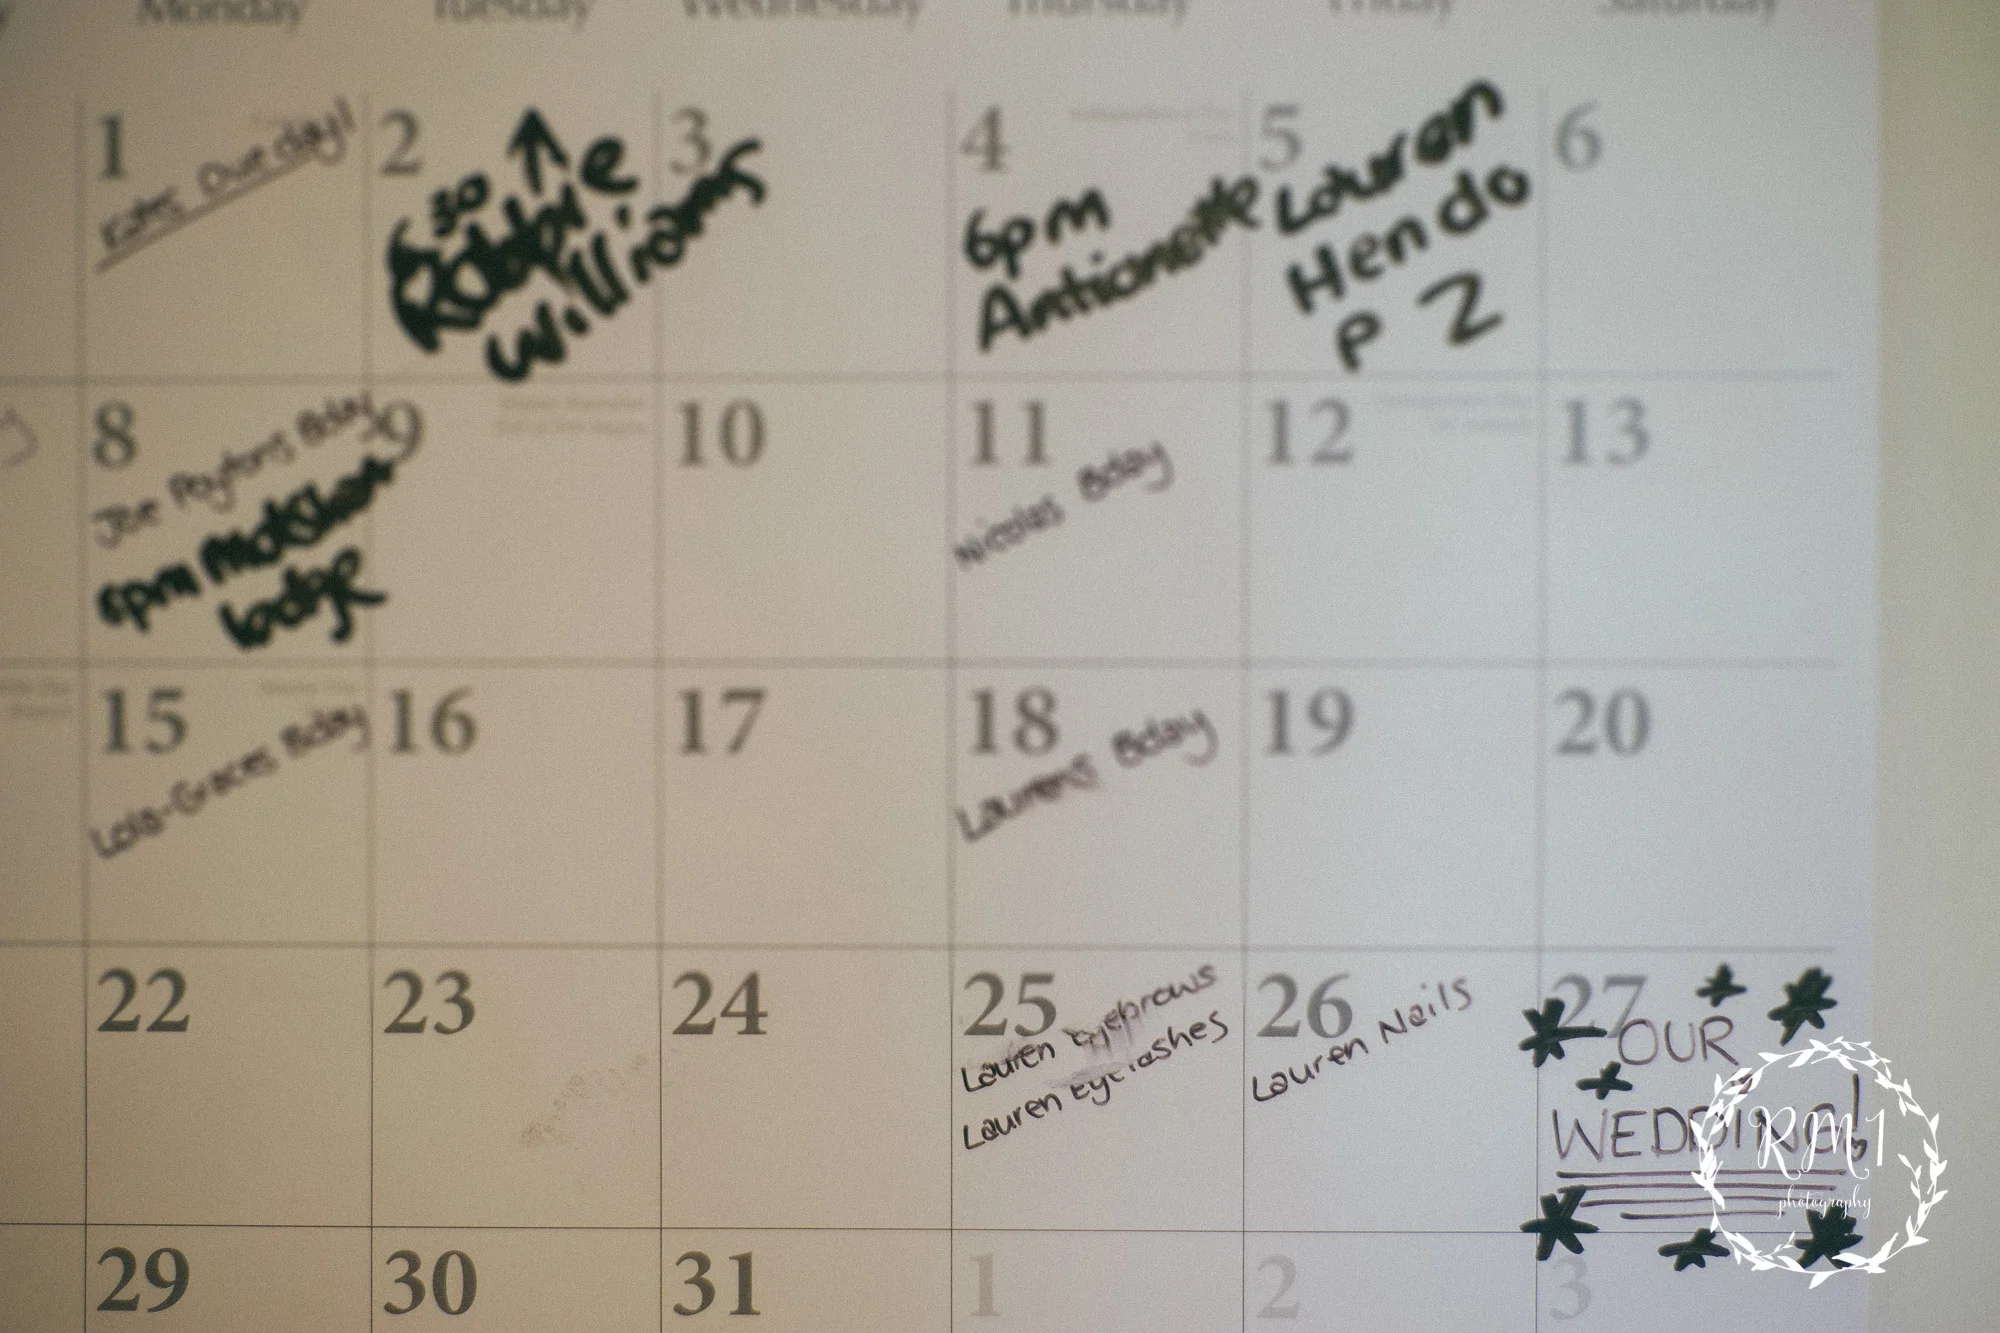 Monday Tuesday Wednesday Thursday Friday Saturday
1
Kates Due day!
2
30
Robbie
Williams
3
4
6pm
Antionette
5
Lauren
Hendo
P 2
6
8
Joe Paytons Bday
6pm
lodge
9
10
11
Nicolas Bday
12
13
15
Lola-Graces Bday
16
17
18
Laurens Bday
19
20
22
23
24
25
Lauren Eyebrows
Lauren Eyelashes
26
Lauren Nails
27
OUR
WEDDING!
29
30
31
1
2
3
RM1
photography